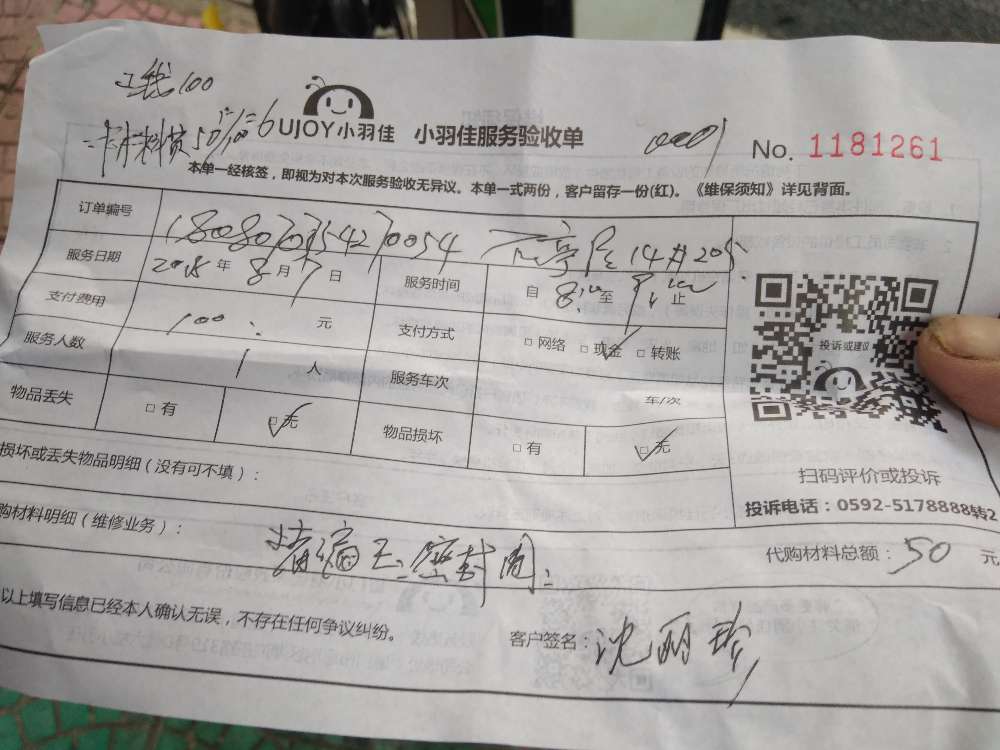 工钱100
UJOY小羽佳 小羽佳服务验收单
No. 1181261
本单一经核签，即视为对本次服务验收无异议。本单一式两份，客户留存一份(红)。《维保须知》详见背面。
订单编号
服务日期 2018 年 8 月 7 日 服务时间 自 至 止
支付费用 100 元 支付方式 □ 网络 □ 现金 □ 转账
服务人数 1 人 服务车次 车/次
物品丢失 □ 有 □ 无 物品损坏 □ 有 □ 无
投诉或建议
扫码评价或投诉
投诉电话：0592-5178888转2
损坏或丢失物品明细（没有可不填）：
购材料明细（维修业务）：
代购材料总额：50 元
以上填写信息已经本人确认无误，不存在任何争议纠纷。
客户签名：沈丽珍